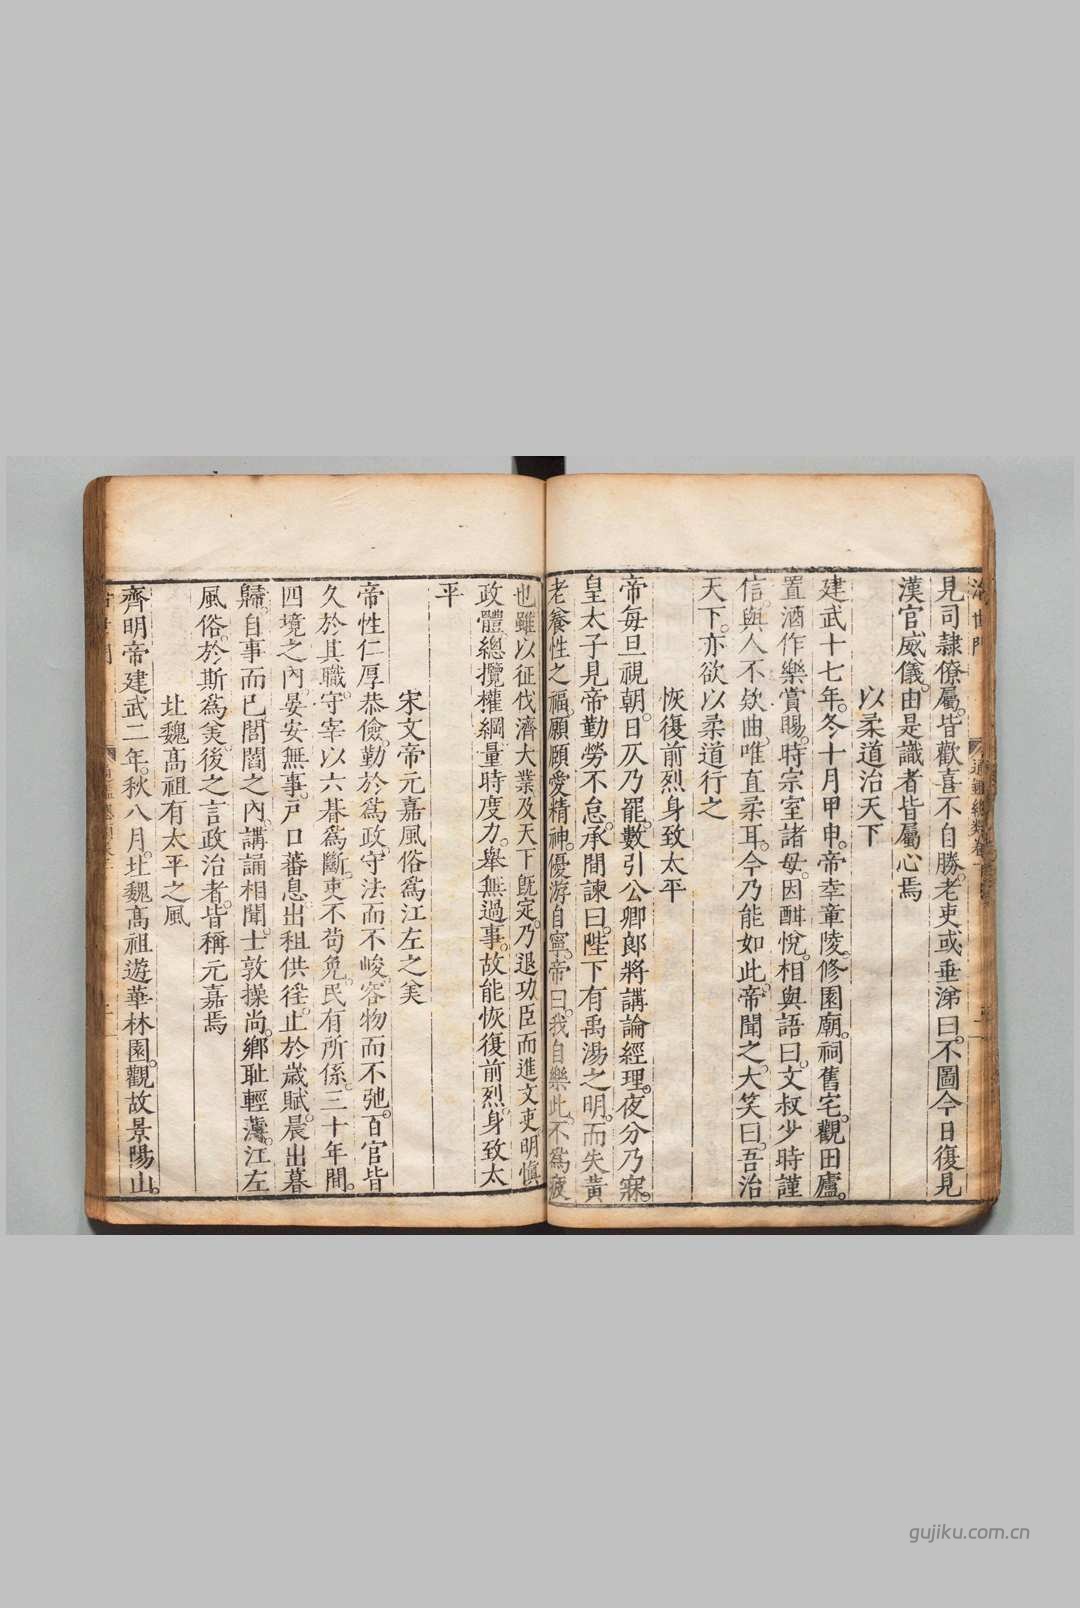 治世門
通鑑總類卷一
見司隸僚屬。皆歡喜不自勝。老吏或垂涕曰。不圖今日復見
漢官威儀。由是識者皆屬心焉
以柔道治天下
建武十七年。冬十月甲申。帝幸章陵。修園廟。祠舊宅。觀田廬。
置酒作樂賞賜。時宗室諸母。因酣悅。相與語曰。文叔少時謹
信。與人不欵曲。唯直柔耳。今乃能如此。帝聞之。大笑曰。吾治
天下。亦欲以柔道行之
恢復前烈身致太平
帝每旦視朝。日仄乃罷。數引公卿郎將講論經理。夜分乃寐。
皇太子見帝勤勞不怠。承間諫曰。陛下有禹湯之明。而失黃
老養性之福。願願愛精神。優游自寧。帝曰。我自樂此。不為疲
也雖以征伐濟大業及天下既定。乃退功臣而進文吏。明慎
政體。總攬權綱。量時度力。舉無過事。故能恢復前烈。身致太
平
宋文帝元嘉風俗為江左之美
帝性仁厚恭儉。勤於為政。守法而不峻。容物而不弛。百官皆
久於其職。守宰以六朞為斷。吏不茍免。民有所係。三十年間。
四境之內。晏安無事。戶口蕃息。出租供徭。止於歲賦。晨出暮
歸。自事而已。閭閻之內。講誦相聞。士敦操尚。鄉耻輕薄。江左
風俗。於斯為美。後之言政治者。皆稱元嘉焉
北魏高祖有太平之風
齊明帝建武二年。秋八月。北魏高祖遊華林園。觀故景陽山。
gujiku.com.cn